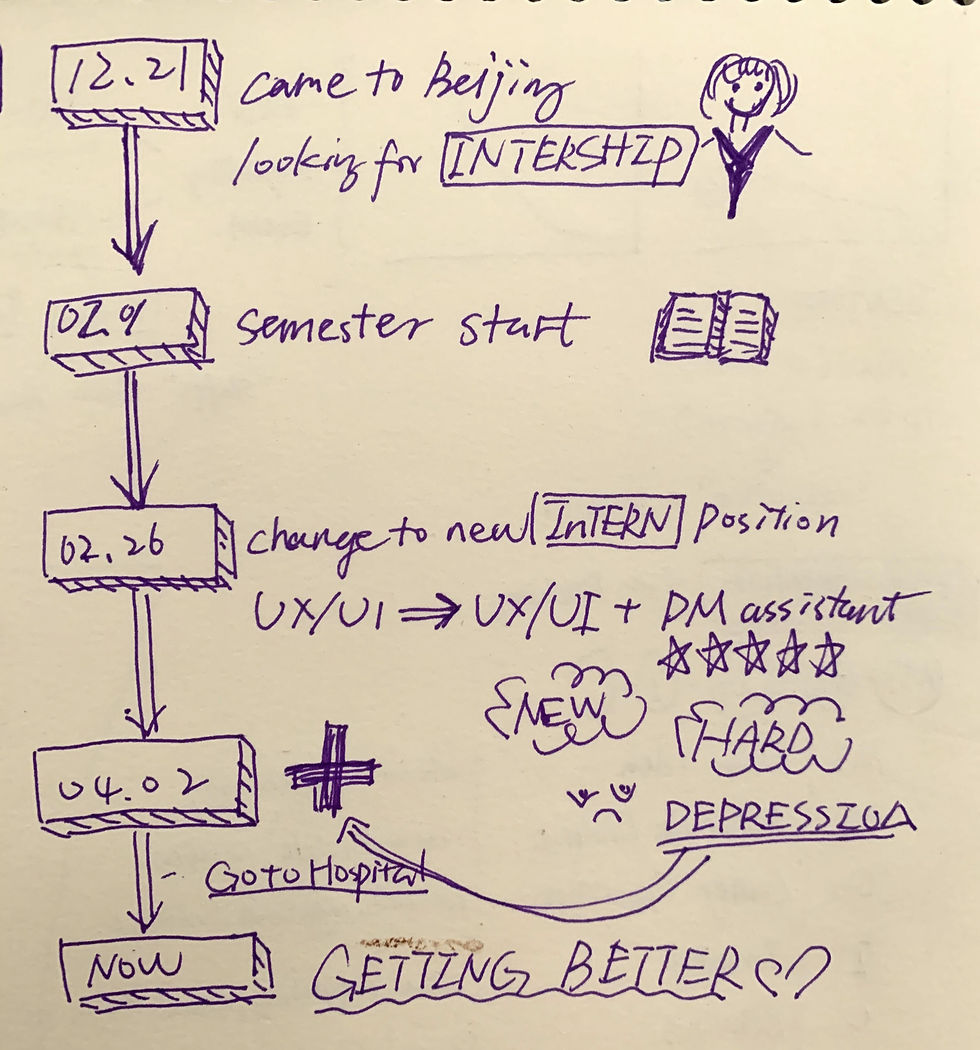 12.21 came to Beijing
looking for INTERSHIP
02.9 semester start
02.26 change to new InTERN position
UX/UI ⇒ UX/UI + DM assistant
☆☆☆☆☆
NEW
HARD
04.02
DEPRESSIOA
Go to Hospital
NOW GETTING BETTER ♡